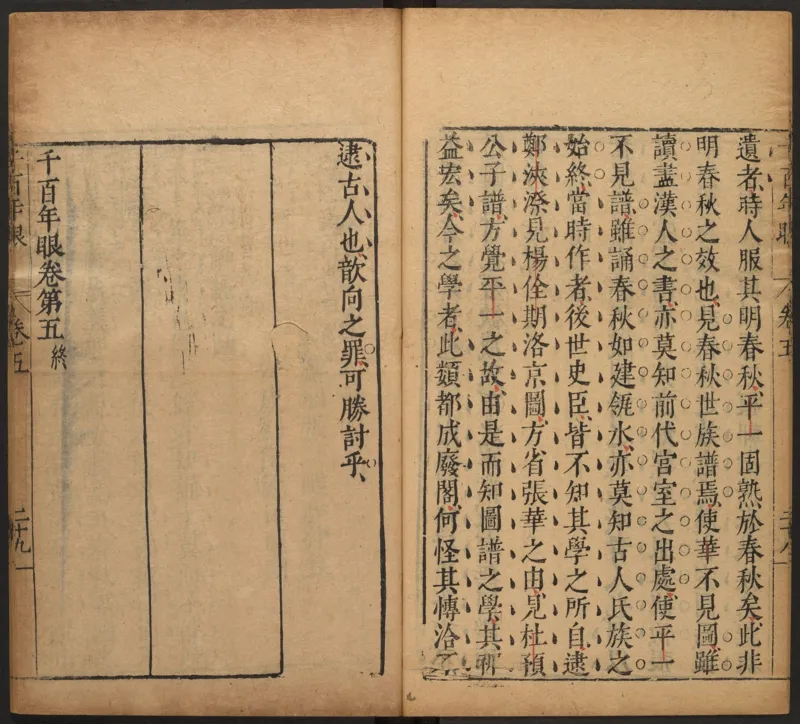 百年眼 卷五 二八
遺者時人服其明春秋平一固熟於春秋矣此非
明春秋之效也見春秋世族譜焉使華不見圖雖
讀盡漢人之書亦莫知前代宮室之出處使平一
不見譜雖誦春秋如建瓴水亦莫知古人氏族之
始終當時作者後世史臣皆不知其學之所自逮
鄭浹漈見楊佺期洛京圖方省張華之由見杜預
公子譜方覺平一之故由是而知圖譜之學其裨
益宏矣今之學者此類都成廢閣何怪其慱洽
逮古人也歆向之罪可勝討乎
千百年眼卷第五終
千百年眼 卷五 二九